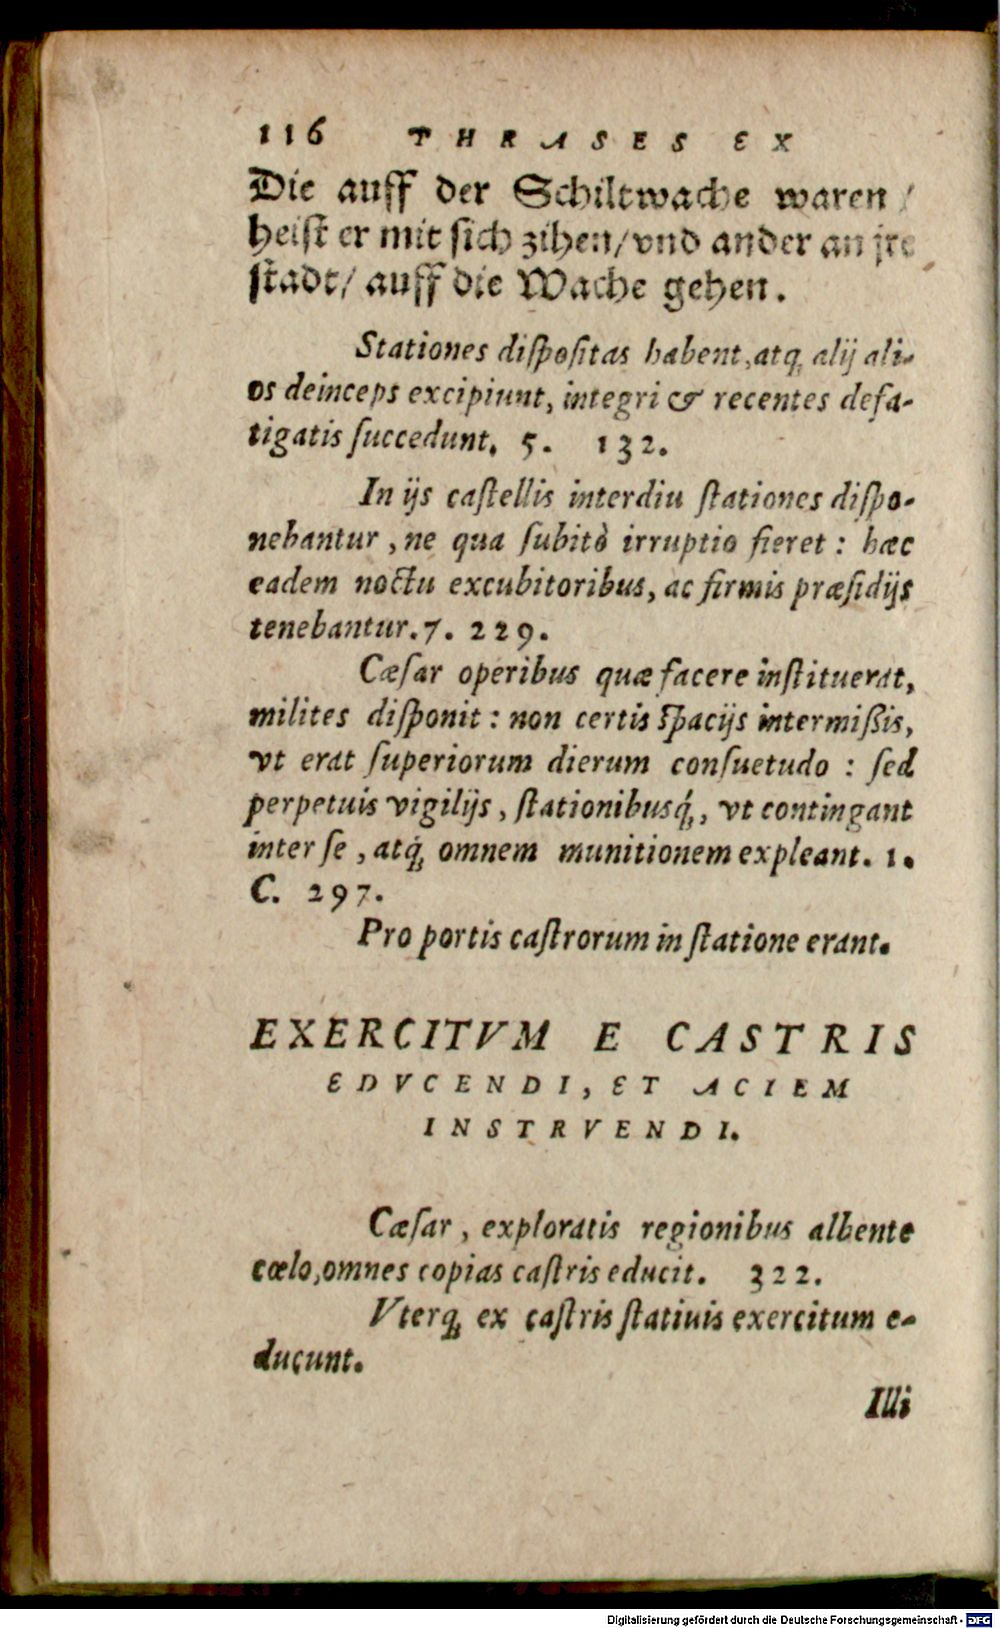 116 PHRASES EX
Die auff der Schiltwache waren /
heist er mit sich zihen/vnd ander an jre
stadt/ auff die Wache gehen.
Stationes diſpoſitas habent, atq; alij ali-
os deinceps excipiunt, integri & recentes defa-
tigatis ſuccedunt. 5. 132.
In ijs caſtellis interdiu ſtationes diſpo-
nebantur, ne qua ſubitò irruptio fieret: hæc
eadem noctu excubitoribus, ac firmis præſidijs
tenebantur. 7. 229.
Cæſar operibus quæ facere inſtituerat,
milites diſponit: non certis ſpacijs intermißis,
vt erat ſuperiorum dierum conſuetudo: ſed
perpetuis vigilijs, ſtationibusq́;, vt contingant
inter ſe, atq́; omnem munitionem expleant. 1.
C. 297.
Pro portis caſtrorum in ſtatione erant.
EXERCITVM E CASTRIS
EDVCENDI, ET ACIEM
INSTRVENDI.
Cæſar, exploratis regionibus albente
cœlo, omnes copias caſtris educit. 322.
Vterq; ex caſtris ſtatiuis exercitum e-
ducunt.
Illi
Digitalisierung gefördert durch die Deutsche Forschungsgemeinschaft - DFG